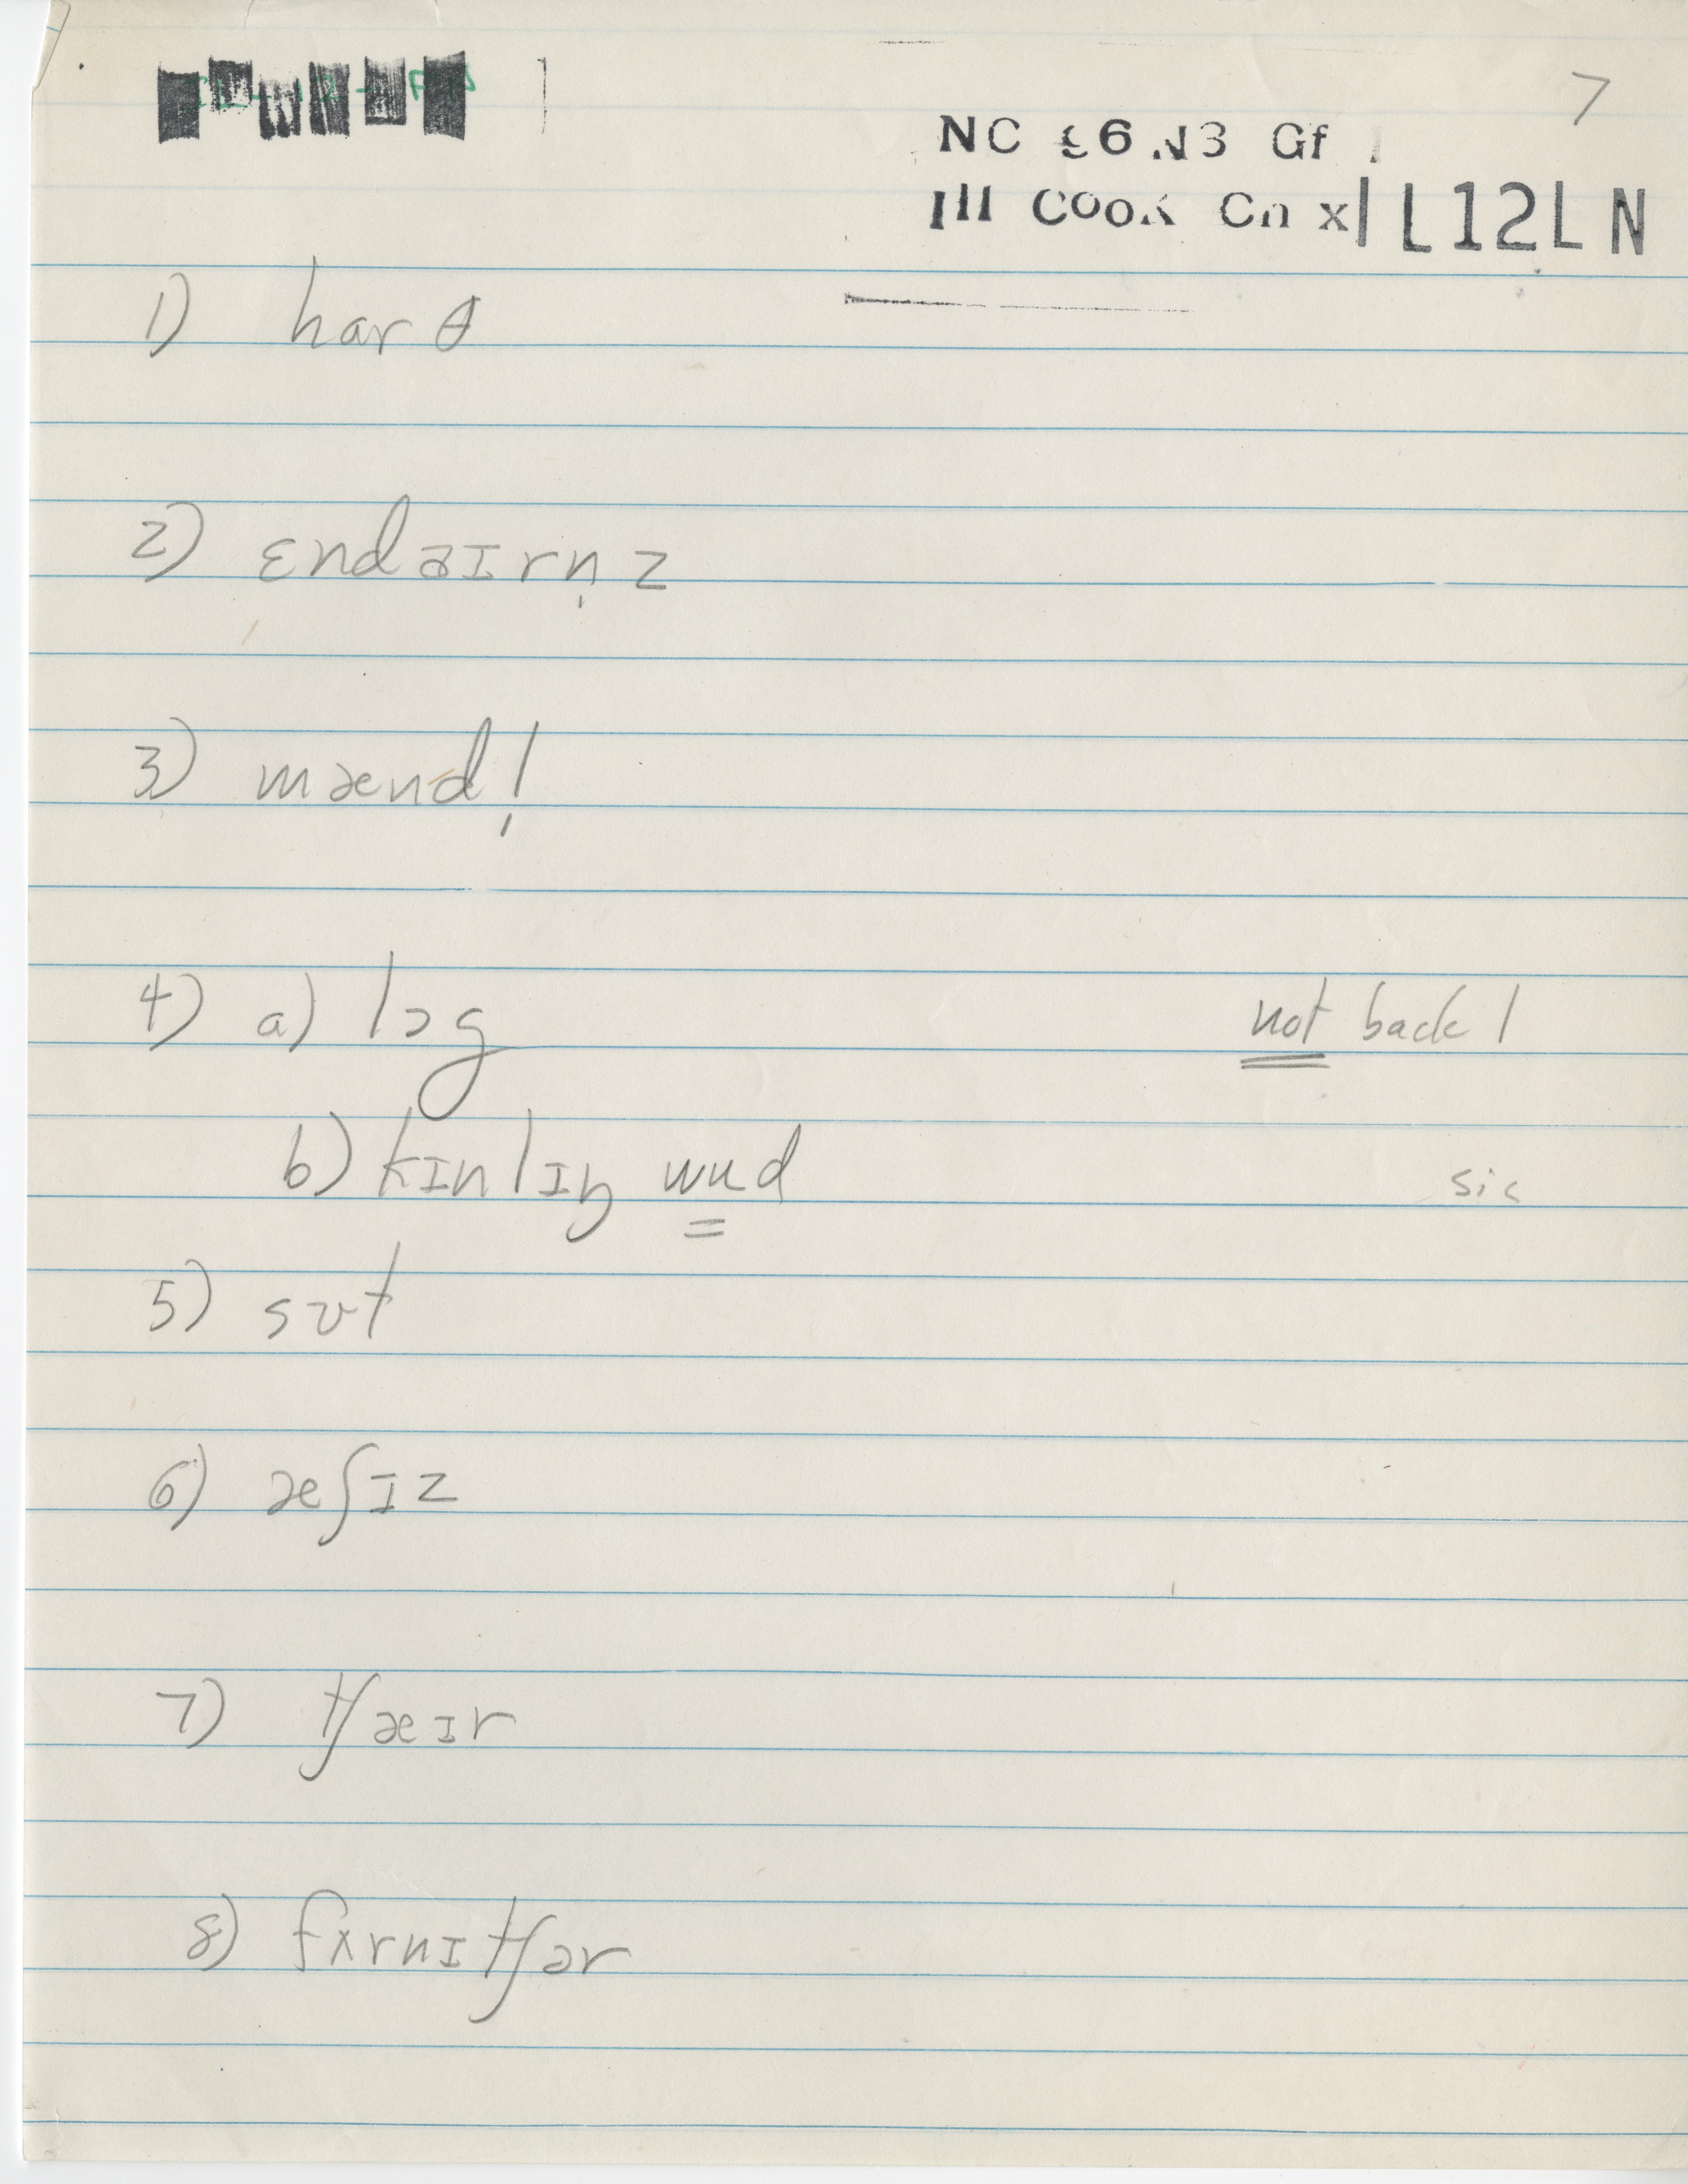 7
NC 26.N3 Gf
Ill Cook Cn x| L12LN
1) harθ
2) ɛndaɪrn̩z
3) mænd!
4) a) lɔg not back!
b) kɪnlɪŋ wud sic
5) sʊt
6) æʃɪz
7) tʃæɪr
8) fɤrnɪtʃər